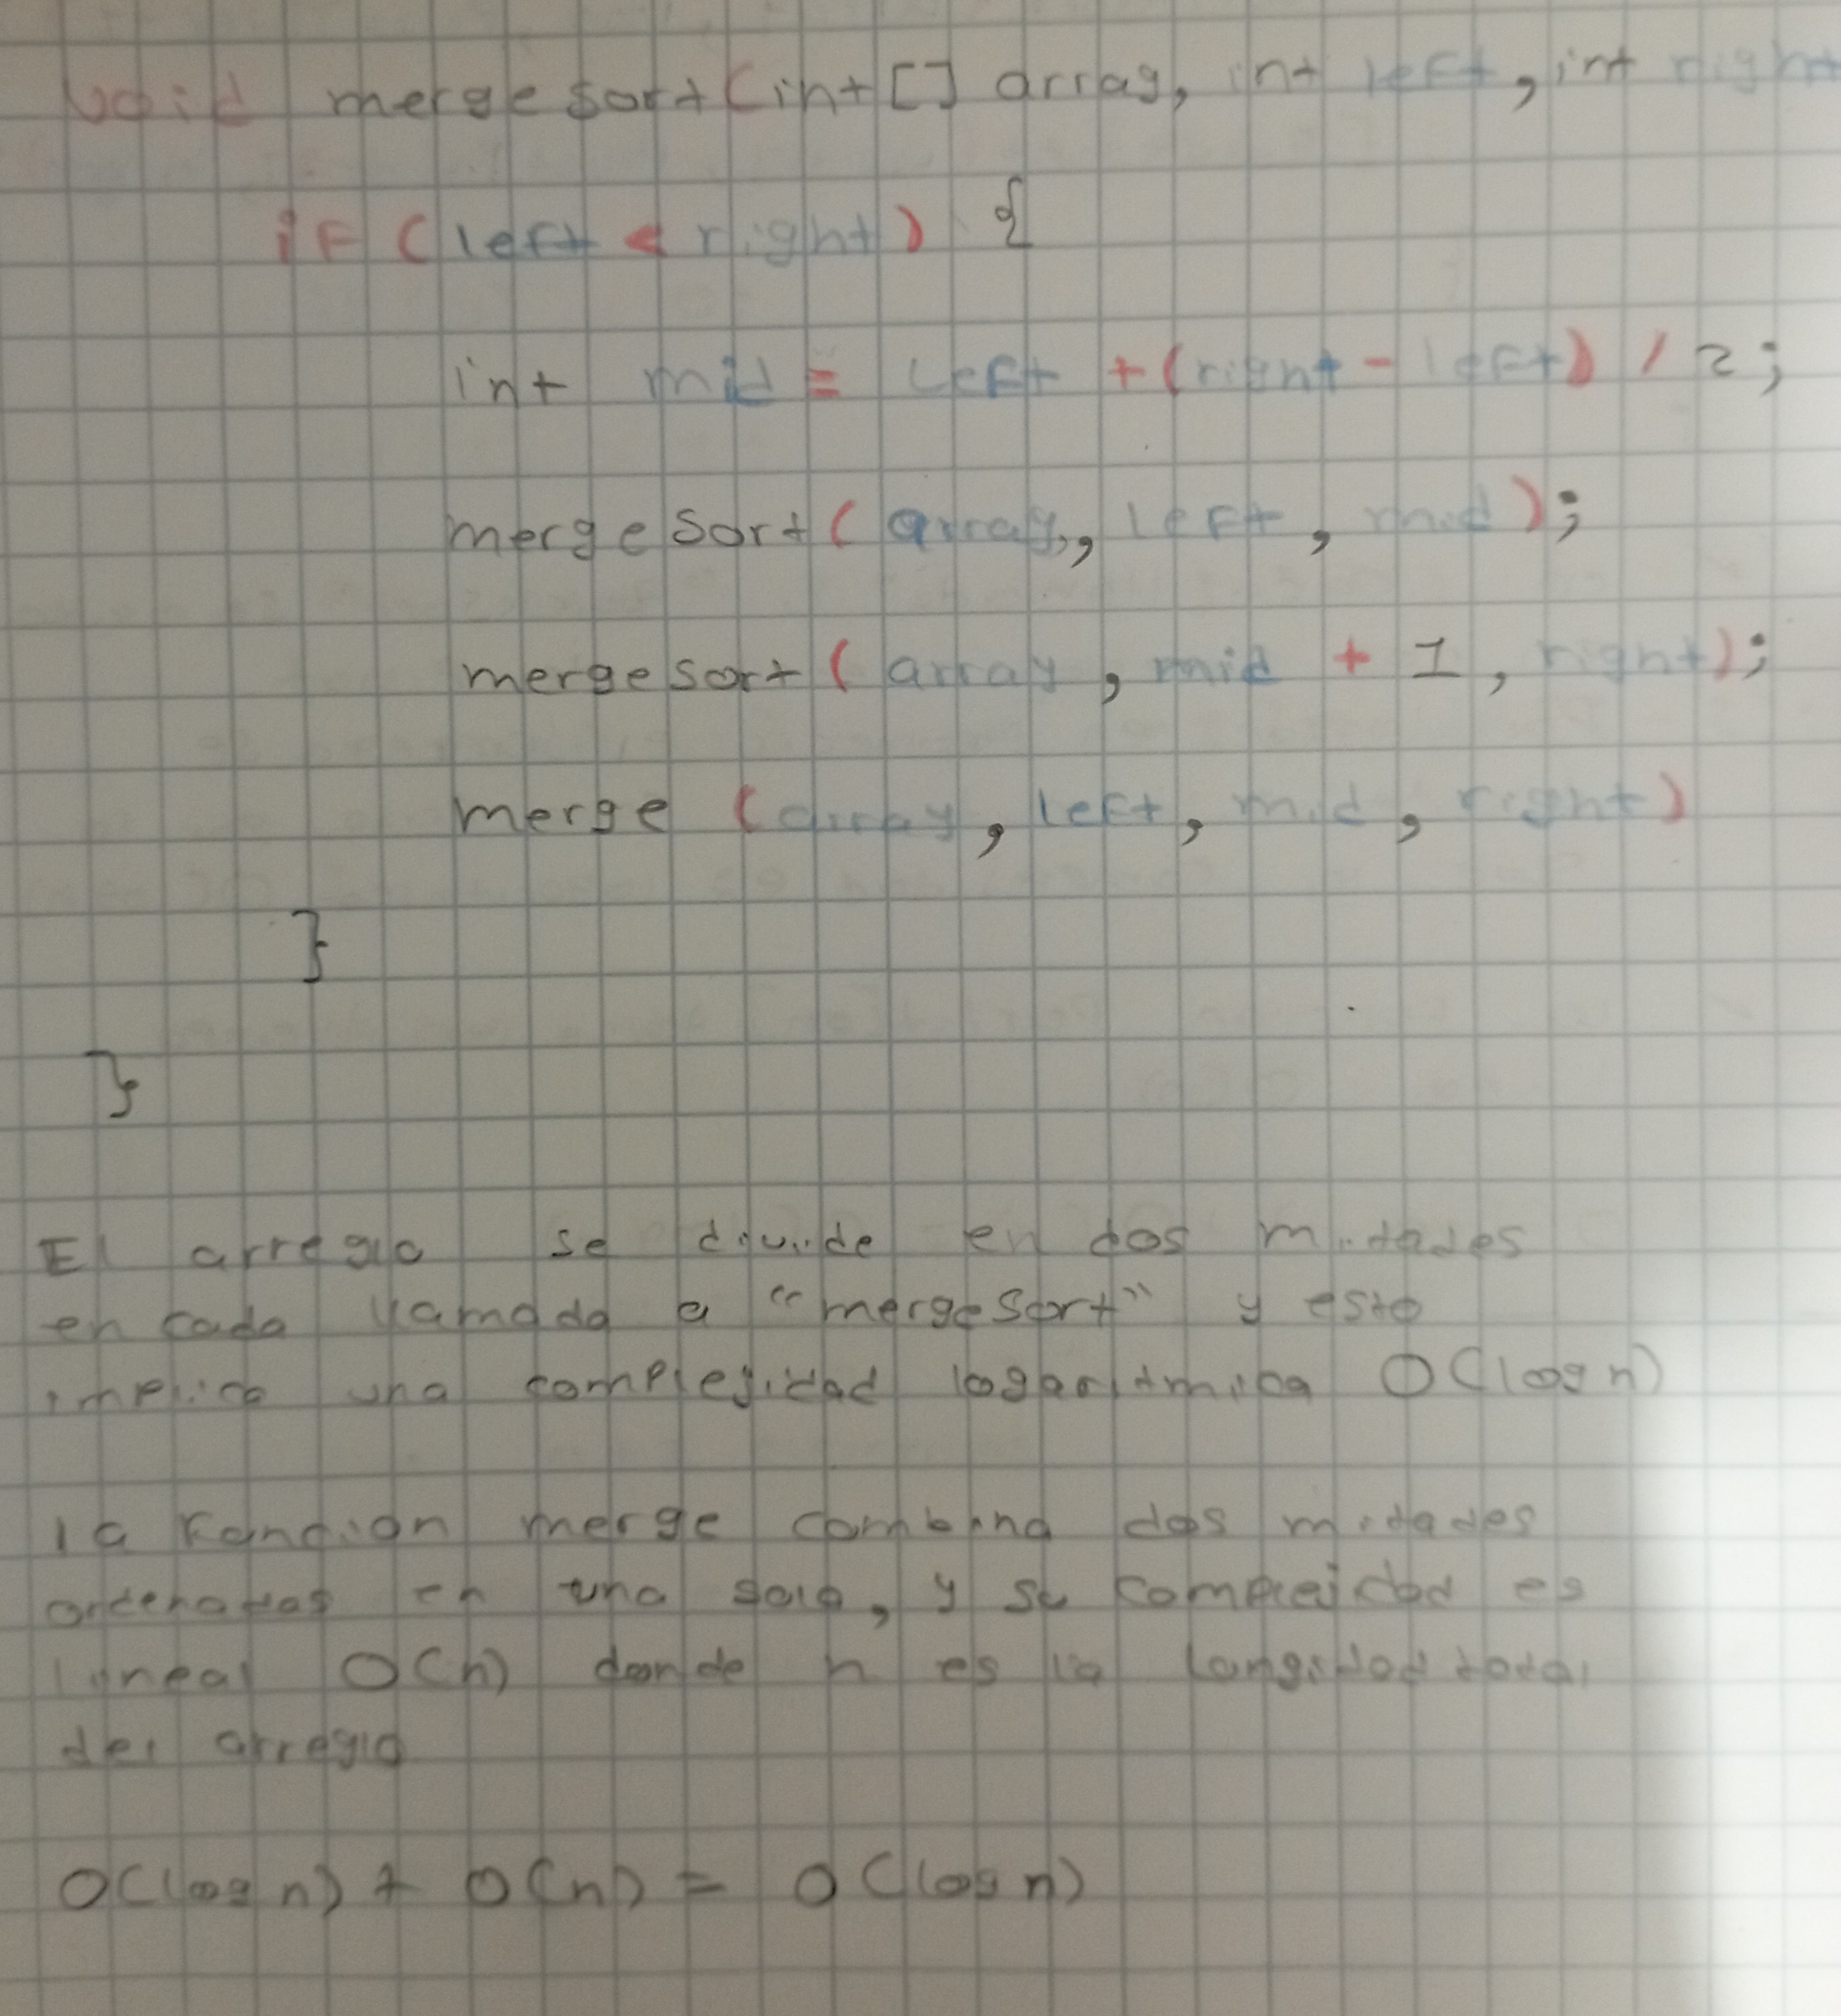 void mergesort(int[] array, int left, int right
if (left < right) {
int mid = left + (right - left) / 2;
mergeSort(array, left, mid);
mergesort(array, mid + 1, right);
merge (array, left, mid, right)
}
}
El arreglo se divide en dos mitades
en cada llamada a "mergeSort" y esto
implica una complejidad logaritmica O(log n)
la fancion merge combina dos mitades
ordenadas en una sola, y su complejidad es
lineal O(n) donde n es la longitud total
del arreglo
O(log n) + O(n) = O(log n)